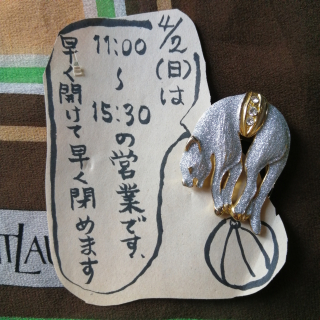 4/2(日)は
11:00
〜
15:30の営業です、
早く開けて早く閉めます
TLAU